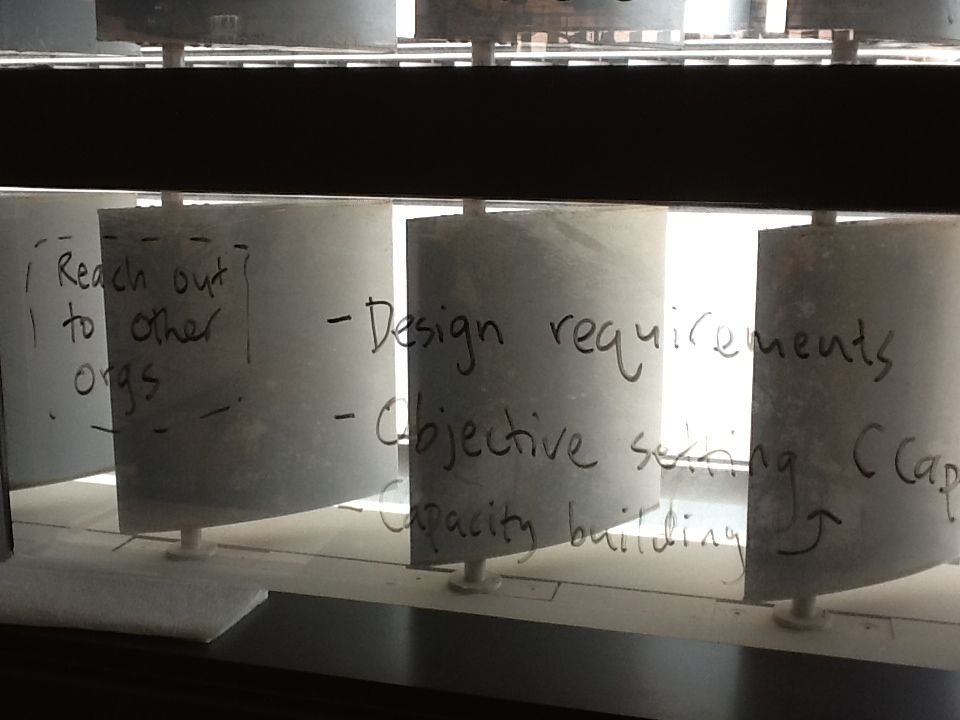 Reach out
to other
orgs
- Design requirements
- Objective setting (Cap
- Capacity building